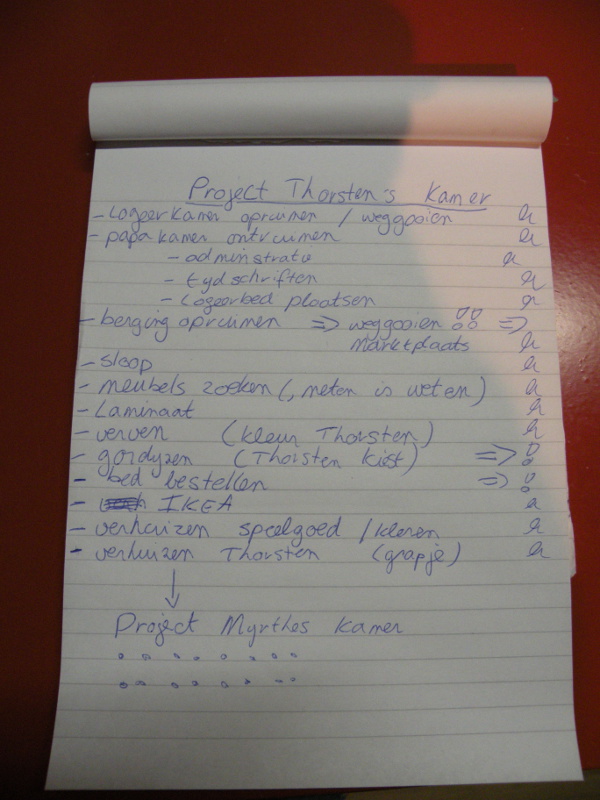 Project Thorsten's Kamer
- Logeerkamer opruimen / weggooien
- papa kamer ontruimen
- administratie
- tydschriften
- Logeerbed plaatsen
- berging opruimen => weggooien !! =>
marktplaats
- sloop
- meubels zoeken (, meten is weten)
- Laminaat
- verven (kleur Thorsten)
- gordyzen (Thorsten kiest) => !
- bed bestellen => !
- IKEA
- verhuizen speelgoed / kleren
- verhuizen Thorsten (grapje)
↓
Project Myrthes Kamer